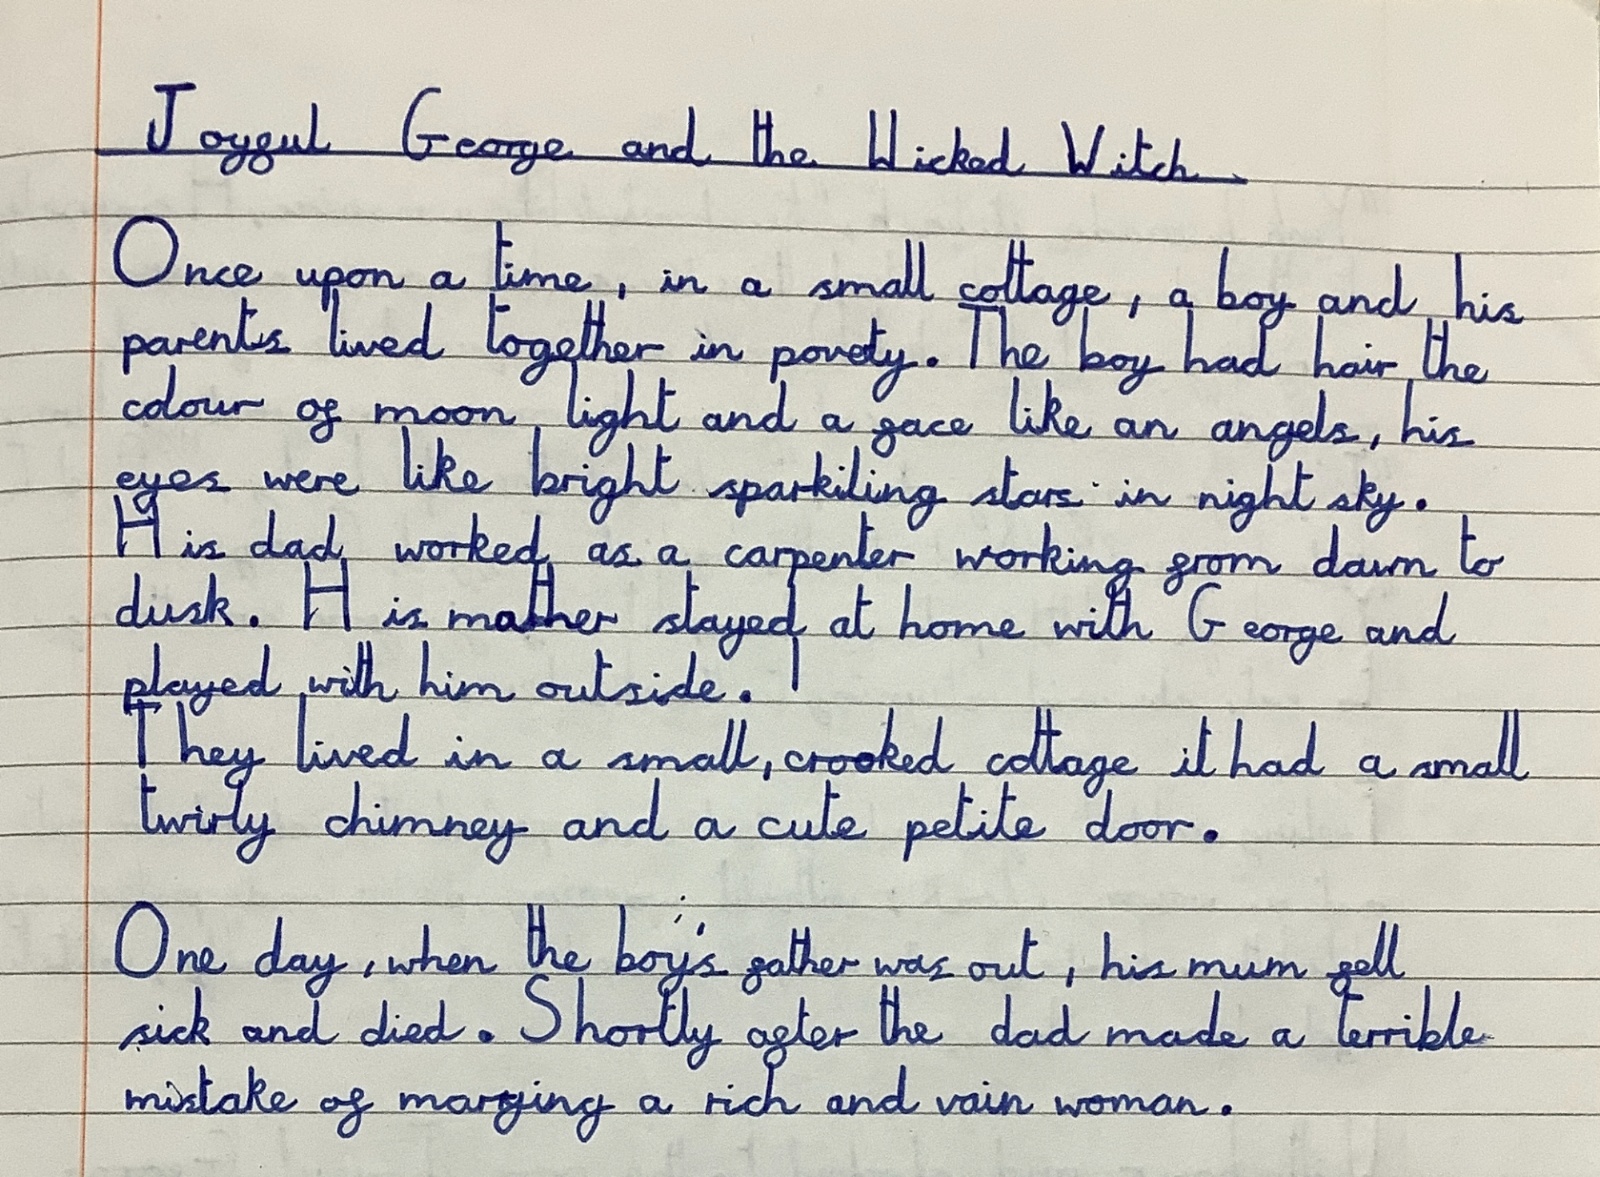 Joyful George and the Wicked Witch
Once upon a time, in a small cottage, a boy and his
parents lived together in povety. The boy had hair the
colour of moon light and a face like an angels, his
eyes were like bright sparkiling stars in night sky.
His dad worked as a carpenter working from dawn to
dusk. His mother stayed at home with George and
played with him outside.
They lived in a small, crooked cottage it had a small
twirly chimney and a cute petite door.
One day, when the boy's father was out, his mum fell
sick and died. Shortly after the dad made a terrible
mistake of marrying a rich and vain woman.